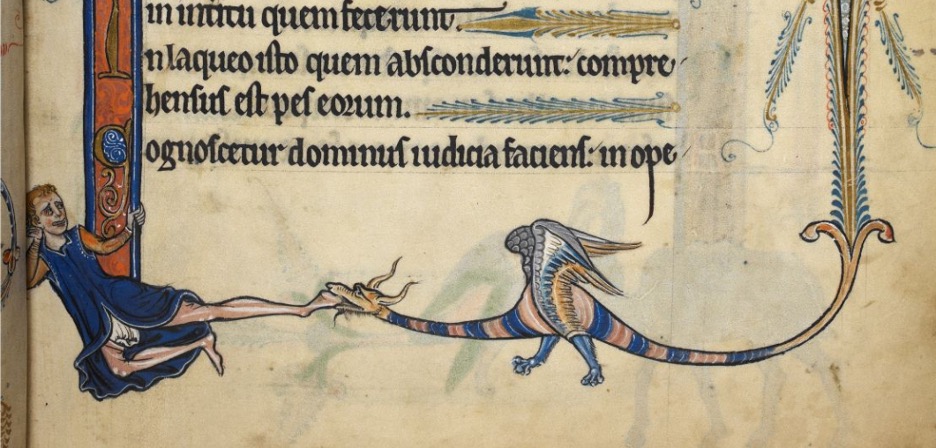 in interitu quem fecerunt.
In laqueo isto quem absconderunt: compre
hensus est pes eorum.
Cognoscetur dominus iudicia faciens: in ope